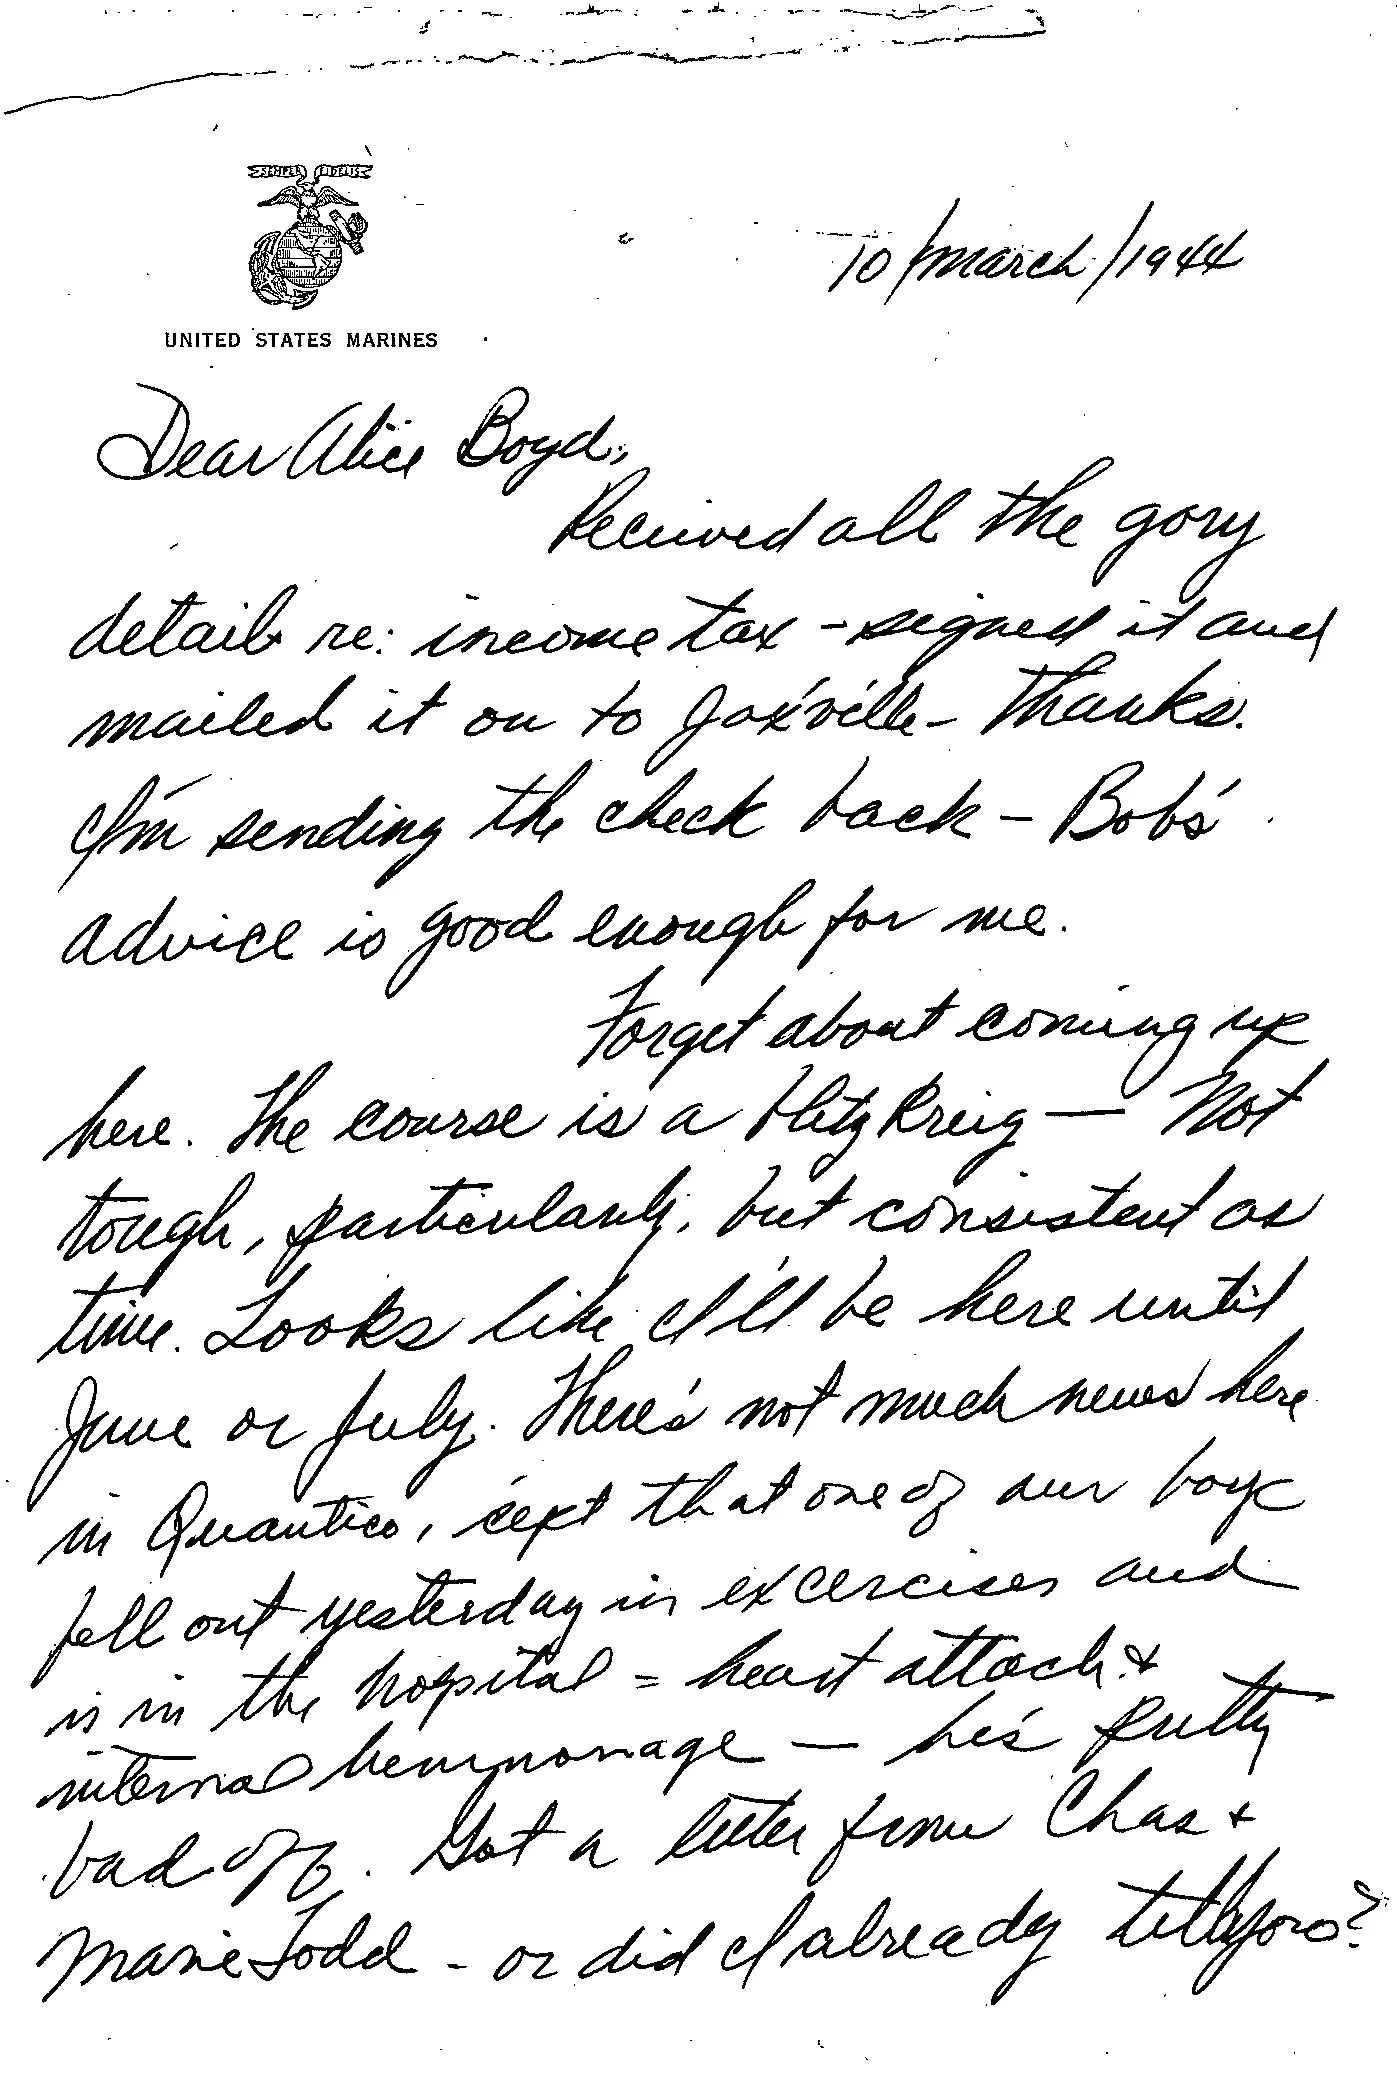 SEMPER FIDELIS
10/March/1944
UNITED STATES MARINES
Dear Alice Boyd,
Received all the gory
details re: income tax - signed it and
mailed it on to Jax'ville - Thanks.
I'm sending the check back - Bob's
advice is good enough for me.
Forget about coming up
here. The course is a blitzkreig - Not
tough, particularly, but consistent as
time. Looks like I'll be here until
June or July. There's not much news here
in Quantico, 'cept that one of our boys
fell out yesterday in exercises and
is in the hospital = heart attack &
internal hemmorrage - he's pretty
bad off. Got a letter from Chas &
Marie Todd - or did I already tell you?